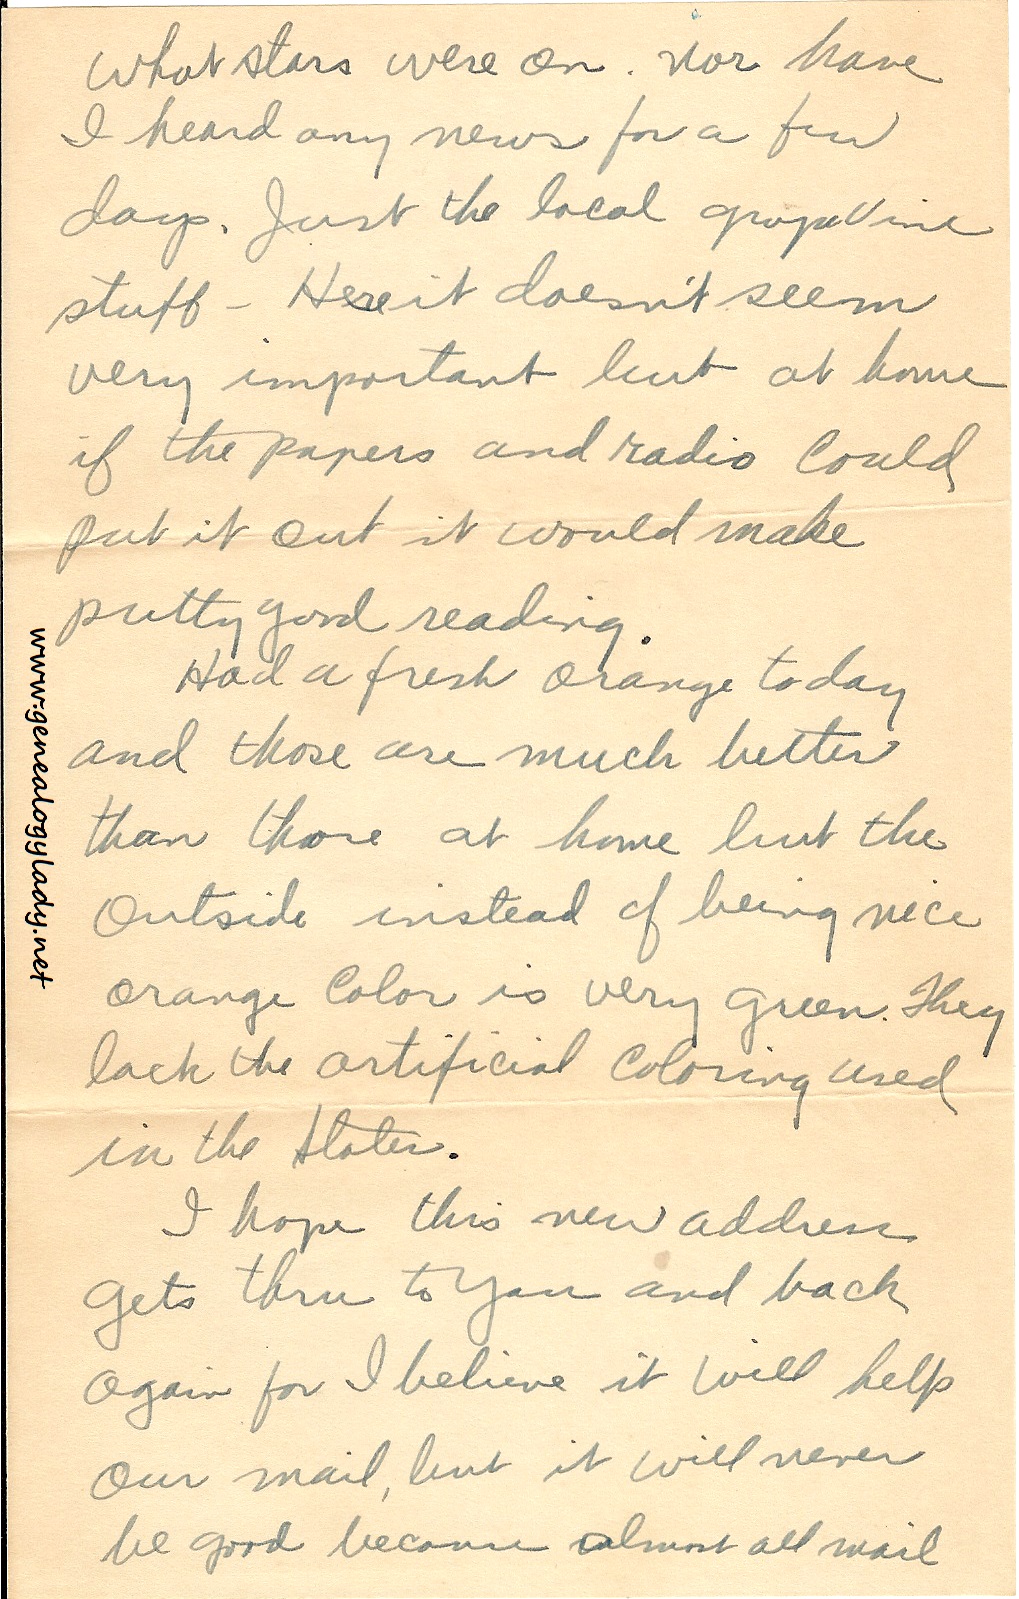 what stars were on. Nor have
I heard any news for a few
days. Just the local grapevine
stuff - Here it doesn't seem
very important but at home
if the papers and radio could
put it out it would make
pretty good reading.
Had a fresh orange today
and those are much better
than those at home but the
outside instead of being nice
orange color is very green. They
lack the artificial coloring used
in the States.
I hope this new address
gets thru to you and back
again for I believe it will help
our mail, but it will never
be good because almost all mail
www.genealogylady.net